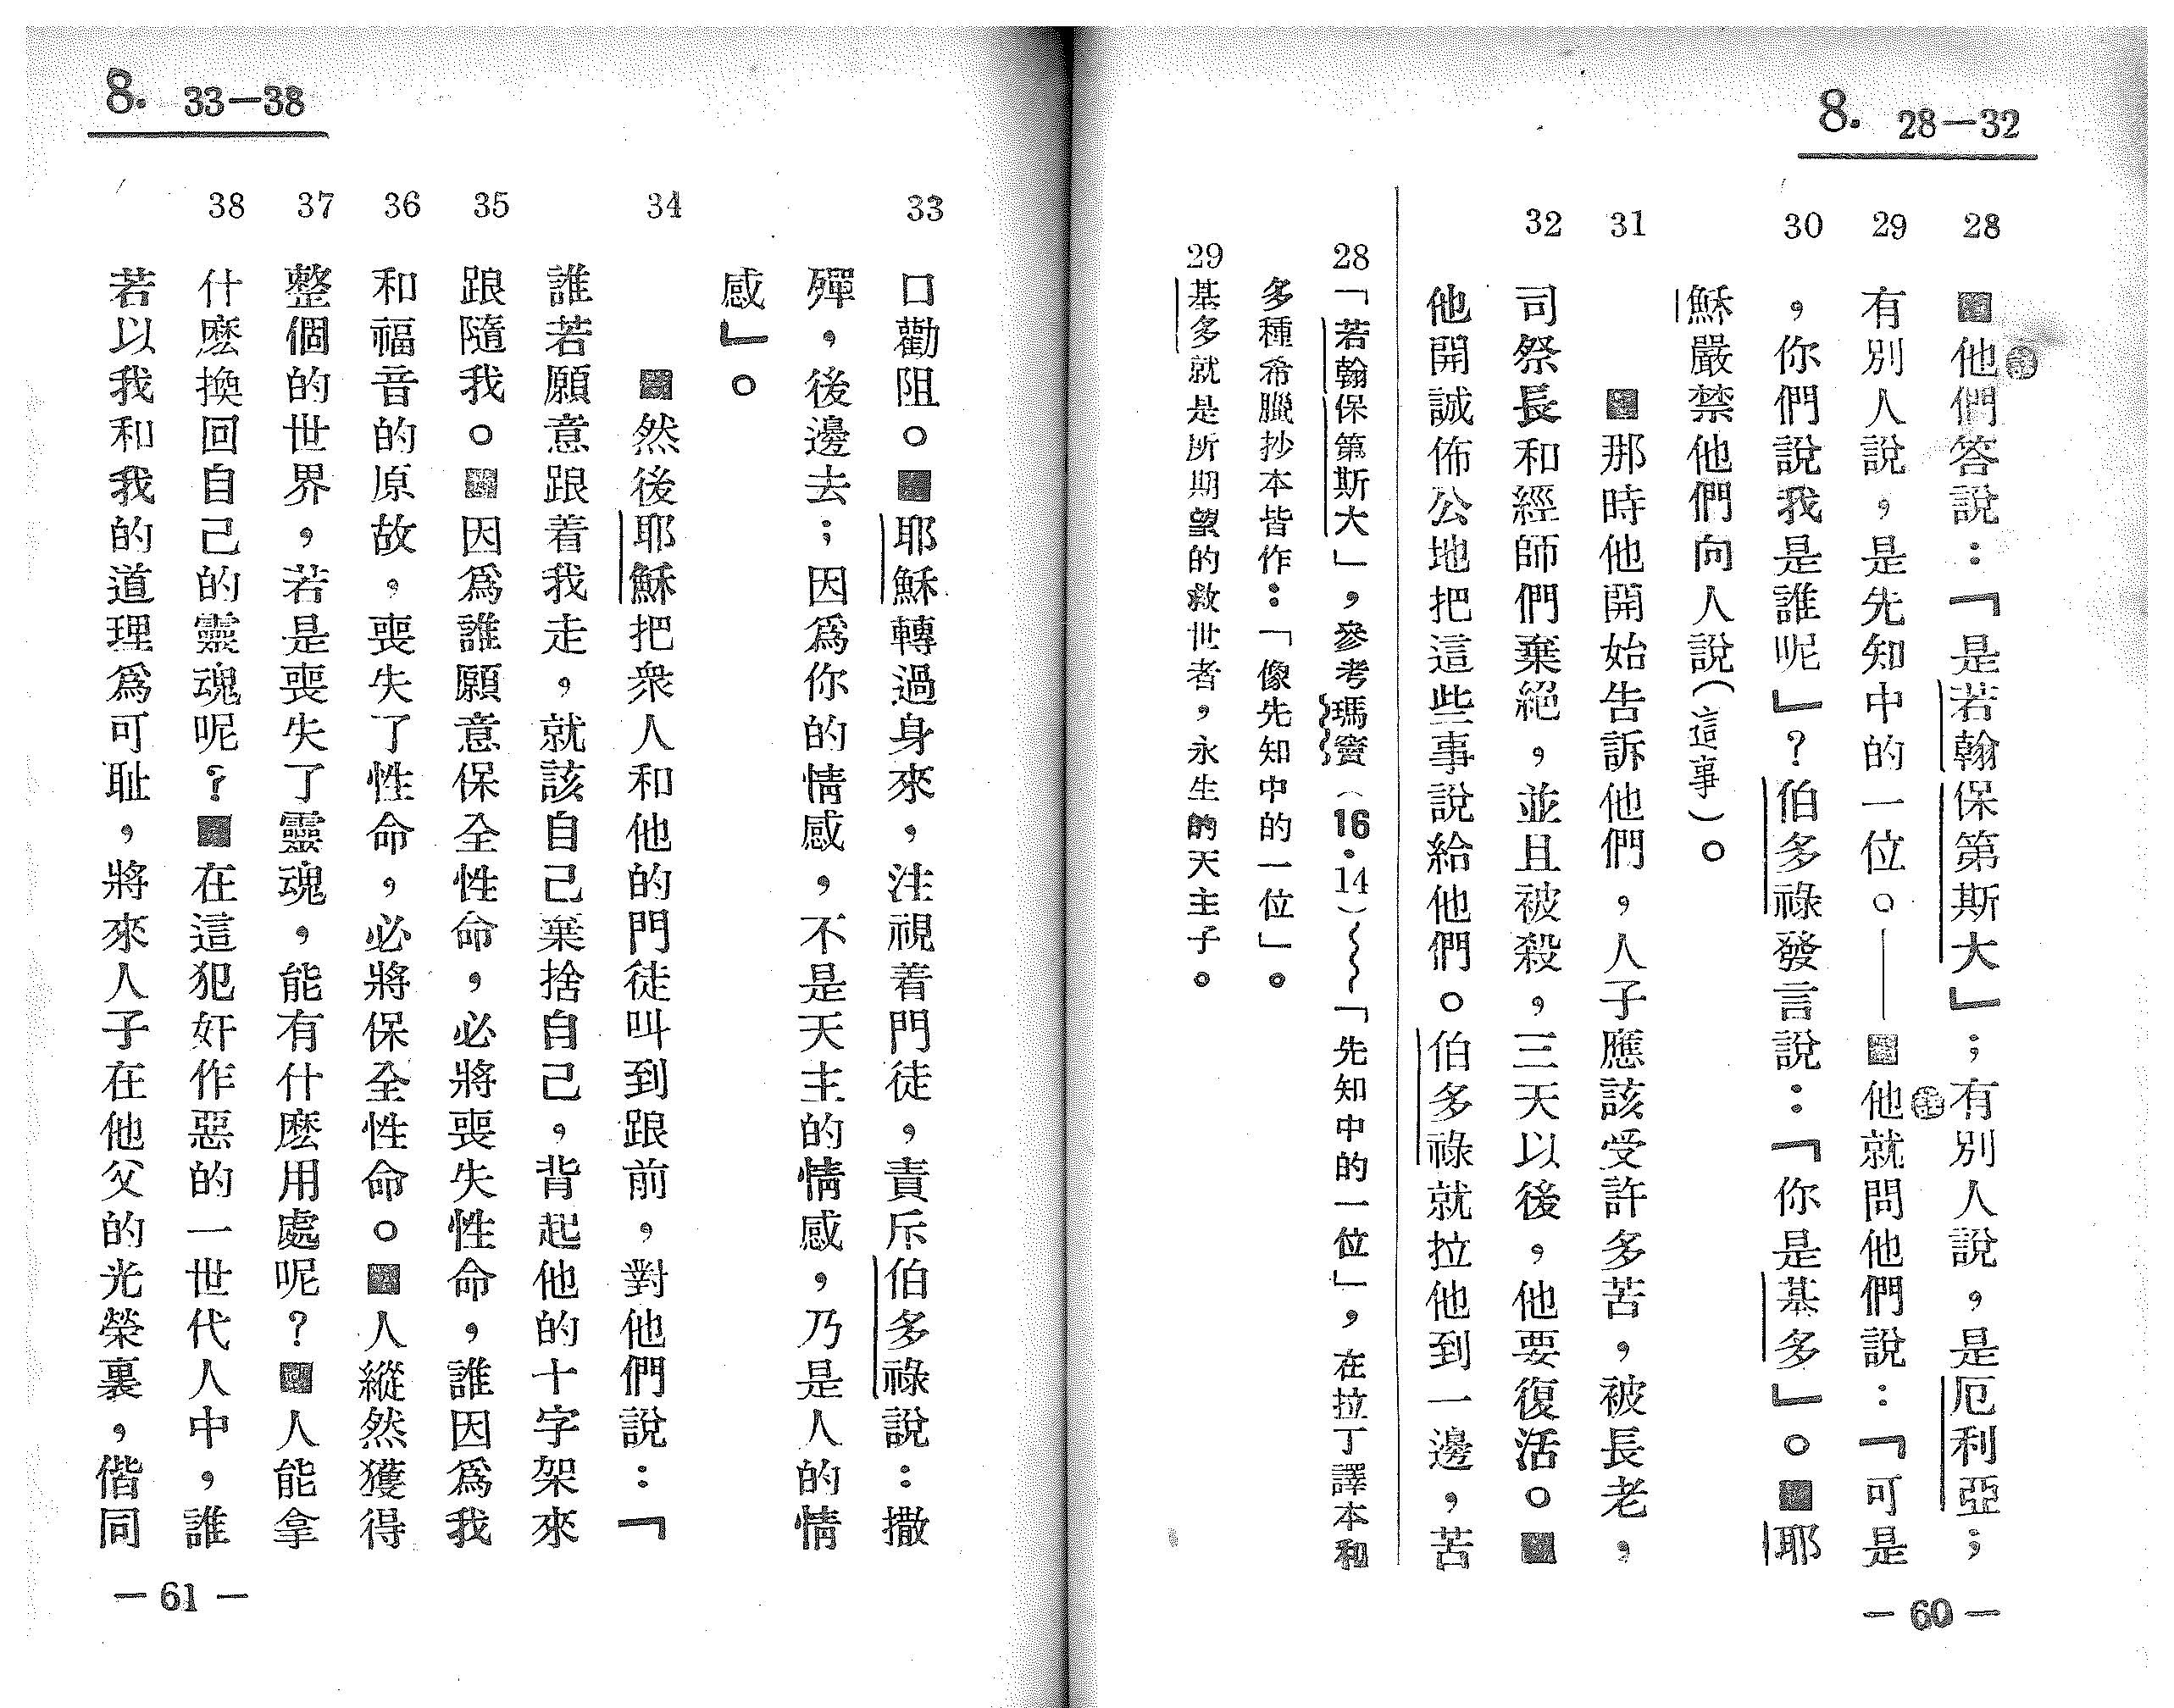 8. 28—32
28
29
30
31
32
他們答說：『是若翰保第斯大』；有別人說，是厄利亞；
有別人說，是先知中的一位。——他就問他們說：『可是
，你們說我是誰呢』？伯多祿發言說：『你是基多』。耶
穌嚴禁他們向人說（這事）。
那時他開始告訴他們，人子應該受許多苦，被長老，
司祭長和經師們棄絕，並且被殺，三天以後，他要復活。
他開誠佈公地把這些事說給他們。伯多祿就拉他到一邊，苦
28「若翰保第斯大」，參考瑪竇（16·14）～～「先知中的一位」，在拉丁譯本和
多種希臘抄本皆作：「像先知中的一位」。
29基多就是所期望的救世者，永生的天主子。
— 60 —
8. 33—38
33
34
35
36
37
38
口勸阻。耶穌轉過身來，注視着門徒，責斥伯多祿說：撒
殫，後邊去；因爲你的情感，不是天主的情感，乃是人的情
感』。
然後耶穌把衆人和他的門徒叫到跟前，對他們說：『
誰若願意跟着我走，就該自己棄捨自己，背起他的十字架來
跟隨我。因爲誰願意保全性命，必將喪失性命，誰因爲我
和福音的原故，喪失了性命，必將保全性命。人縱然獲得
整個的世界，若是喪失了靈魂，能有什麽用處呢？人能拿
什麽換回自己的靈魂呢？在這犯奸作惡的一世代人中，誰
若以我和我的道理爲可耻，將來人子在他父的光榮裏，偕同
— 61 —